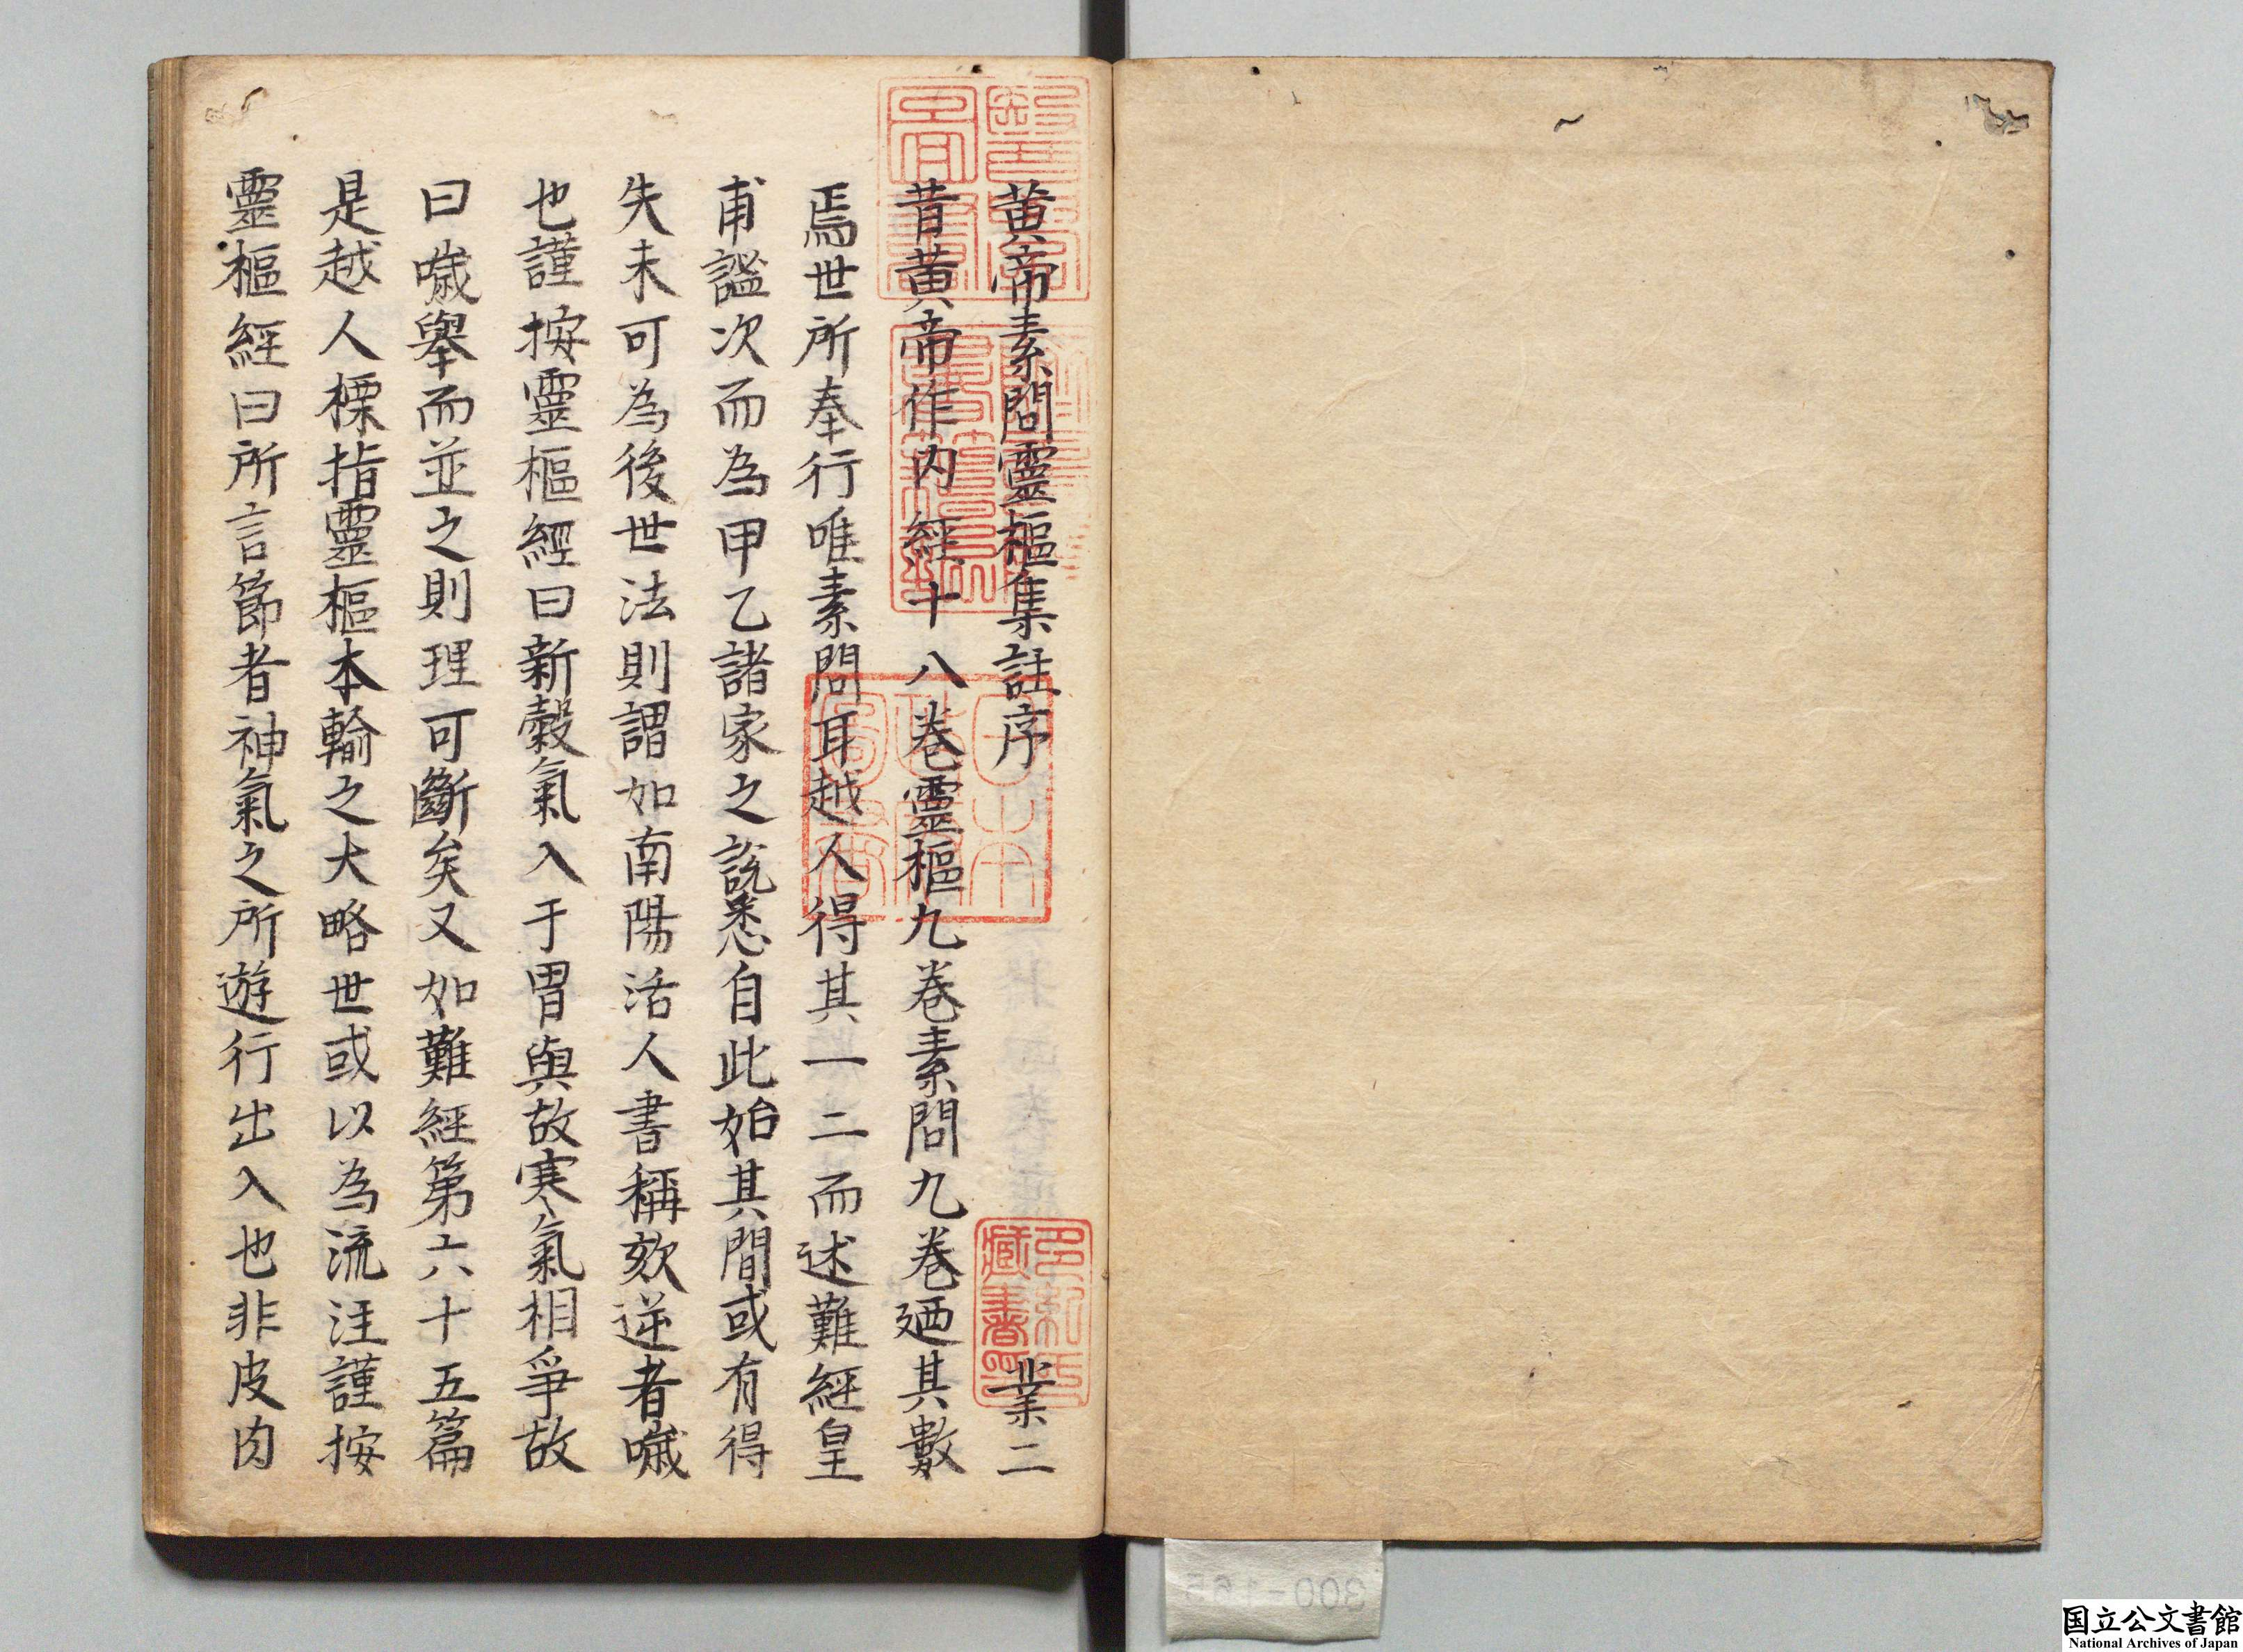 黄帝素問靈樞集註序 業二
昔黄帝作内經十八巻靈樞九巻素問九巻廼其數
焉世所奉行唯素問耳越人得其一二而述難經皇
甫謐次而為甲乙諸家之說悉自此始其間或有得
失未可為後世法則謂如南陽活人書稱欬逆者噦
也謹按靈樞經曰新穀氣入于胃與故寒氣相爭故
曰噦舉而並之則理可斷矣又如難經第六十五篇
是越人標指靈樞本輸之大略世或以為流注謹按
靈樞經曰所言節者神氣之所遊行出入也非皮肉
藏書
300-165
国立公文書館
National Archives of Japan